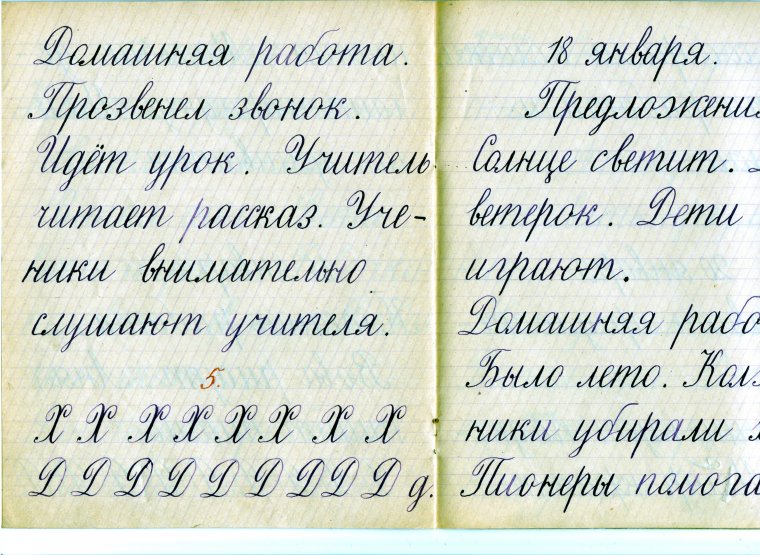 Домашняя работа.
Прозвенел звонок.
Идёт урок. Учитель
читает рассказ. Уче-
ники внимательно
слушают учителя.
5.
Х Х Х Х Х Х Х Х
Д Д Д Д Д Д Д Д Д д.
18 января.
Предложени
Солнце светит.
ветерок. Дети
играют.
Домашняя рабо
Было лето. Кол
ники убирали
Пионеры помога